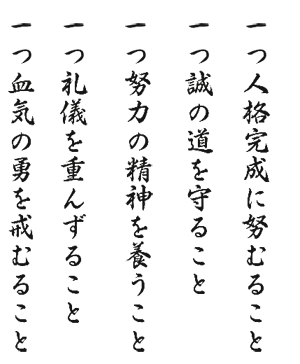 一つ人格完成に努むること
一つ誠の道を守ること
一つ努力の精神を養うこと
一つ礼儀を重んずること
一つ血気の勇を戒むること